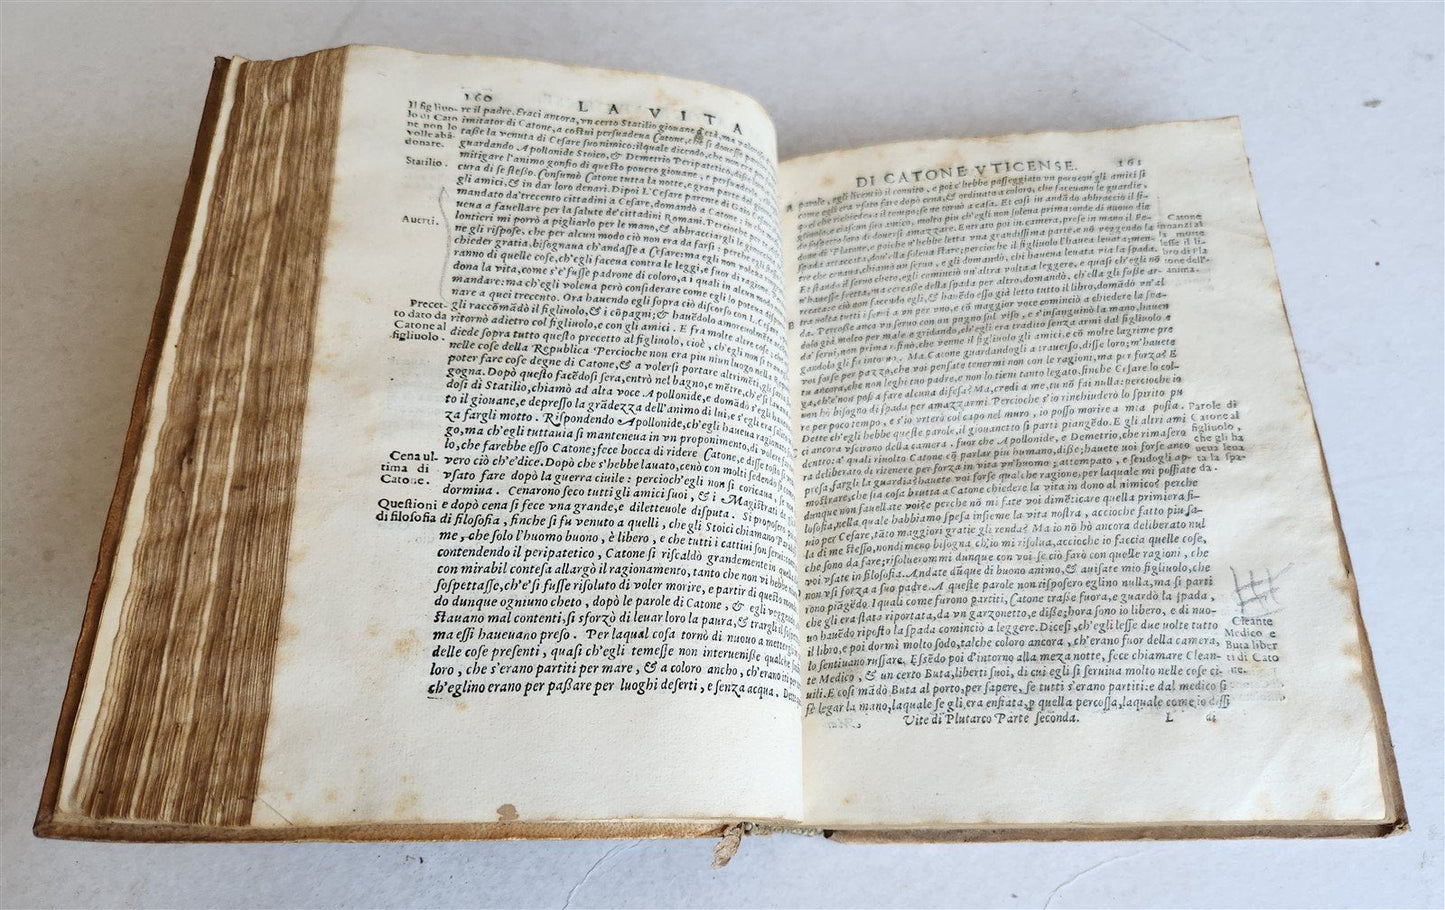 160 LA VITA
Il figliuo-
lo di Cato
ne non lo
volle abã
donare.
Statilio.
Auerti.
Precet-
to dato da
Catone al
figliuolo.
Cena ul-
tima di
Catone.
Questioni
di filosofia
re il padre. Eraci ancora, vn certo Statilio giouane
imitator di Catone, a costui persuadeua Catone, che si douesse
taße la venuta di Cesare suo nimico: ilquale dicendo, che non
guardando Apollonide Stoico, & Demetrio Peripatetico, disse
mitigare l'animo gonfio di questo pouero giouane, e persuadendo
cura di se steßo. Consumò Catone tutta la notte, e gran parte del
gli amici, & in dar loro denari. Dipoi L. Cesare parente di Gaio Cesare
mandato da'trecento cittadini a Cesare, domandò a Catone
ueua a fauellare per la salute de' cittadini Romani. Percioche
lontieri mi porrò a pigliarlo per le mano, & abbracciargli le
ne gli rispose, che per alcun modo ciò non era da farsi: perche
chieder gratia, bisognaua ch'andasse a Cesare: ma egli non
ranno di quelle cose, ch'egli facea contra le leggi, e fuor di ragione
dona la vita, come s'e' fusse padrone di coloro, a i quali in alcun modo
mandare: ma ch'egli voleua però considerare come egli lo potea
nare a quei trecento. Ora hauendo egli sopra ciò discorso con L. Cesare
gli raccõmãdò il figliuolo, & i cõpagni; & hauẽdolo amoreuolmẽte
ritornò adietro col figliuolo, e con gli amici. E fra molte altre cose, che
diede sopra tutto questo precetto al figliuolo, cioè, ch'egli non s'
nelle cose della Republica Percioche non era piu niun luogo nella
poter fare cose degne di Catone, & a volersi portare altrimẽti, gli
gogna. Dopò questo facẽdosi sera, entrò nel bagno, e mẽtre, ch'e' si lauaua
dosi di Statilio, chiamò ad alta voce Apollonide, e domãdò s'egli
to il giouane, e depresso la grãdezza dell'animo di lui, e s'egli
za fargli motto. Rispondendo Apollonide, ch'egli haueua ragionato
go, ma ch'egli tuttauia si manteneua in vn proponimento, di volere
lo, che farebbe esso Catone; fece bocca di ridere Catone, e disse tosto
vero ciò ch'e'dice. Dopò che s'hebbe lauato, cenò con molti sedendo
vsato fare dopò la guerra ciuile: percioch'egli non si coricaua, se non
dormiua. Cenarono seco tutti gli amici suoi, & i Magistrati di
e dopò cena si fece vna grande, e diletteuole disputa. Si proposero
di filosofia, finche si fu venuto a quelli, che gli Stoici chiamano
me, che solo l'huomo buono, è libero, e che tutti i cattiui son serui
contendendo il peripatetico, Catone si riscaldò grandemente in
con mirabil contesa allargò il ragionamento, tanto che non vi hebbe
sospettasse, ch'e'si fusse risoluto di voler morire, e partir di questo
do dunque ogniuno cheto, dopò le parole di Catone, & egli veggendo
stauano mal contenti, si sforzò di leuar loro la paura, & trargli il sospetto
ma essi haueuano preso. Per laqual cosa tornò di nuouo a metter
delle cose presenti, quasi ch'egli temesse non interueniße qualche
loro, che s'erano partiti per mare, & a coloro ancho, ch'erano iti per
ch'eglino erano per paßare per luoghi deserti, e senza acqua.
DI CATONE VTICENSE. 161
parole, egli licentiò il conuito, e poi c'hebbe passeggiato vn pezzo con gli amici si
come egli era vsato fare dopò cena, & ordinato a coloro, che faceuano le guardie,
quel che richiedeua il tempo; se ne tornò a casa. Et così in andãdo abbracciò il fi-
gliuolo, e ciascun suo amico, molto piu ch'egli non soleua prima: onde di nuouo die
de sospetto loro di douersi amazzare. Entrato poi in camera, prese in mano il Fe-
done di Platone, e poiche s'hebbe letta vna grandissima parte, e nõ veggendo la
spada attaccata, dou'ella solena stare; percioche il figliuolo l'hauea leuata; men-
tre che cenaua, chiamò un seruo, e gli domandò, chi hauena leuato via la spada.
Et stando il seruo cheto, egli cominciò un'altra volta a leggere, e quasi ch'egli nõ
n'hauesse fretta, ma cercaße della spada per altro, domandò, ch'ella gli fuße ar-
recata: e ciò non facendo egli, & hauẽdo esso già letto tutto il libro, domãdò vn'al
tra volta tutti i serui a vn per vno, e cõ maggior voce cominciò a chiedere la spa-
da. Percoße anco vn seruo con un pugno sul viso, e s'insanguinò la mano, hauen
dolo già molto per male e gridando, ch'egli era tradito senza armi dal figliuolo e
da' serui, non prima rifinò, che venne il figliuolo con gli amici, e cõ molte lagrime pre
gandolo gli fu intorno. Ma Catone guardandogli a trauerso, disse loro; m'hauete
voi forse per pazzo, che voi pensate tenermi non con le ragioni, ma per forza? E
tu ancora, che non leghi tuo padre, e non lo tieni tanto legato, finche Cesare lo col-
ga, ch'e' non poß'a fare alcuna difesa? Ma, credi a me, tu nõ fai nulla: percioche io
non hò bisogno di spada per amazzarmi Percioche s'io rinchiuderò lo spirito pu
re per poco tempo, e s'io vrterò col capo nel muro, io posso morire a mia posta.
Dette ch'egli hebbe queste parole, il giouanetto si parti piangẽdo. E gli altri ami
ci ancora vscirono della camera. fuor che Apollonide, e Demetrio, che rimasero
dentro: a' quali riuolto Catone cõ parlar piu humano, diße; hauete voi forse anco
ra deliberato di ritenere per forza in vita vn'huomo; attempato, e sendogli ap-
presa, fargli la guardia? hauete voi forse qualche ragione, per laquale mi possiate
mostrare, che sia cosa brutta a Catone chiedere la vita in dono al nimico? perche
dunque non fauellate voi? e perche nõ mi fate voi dimẽticare quella primiera fi-
losofia, nella quale habbiamo spesa insieme la vita nostra, acciocche fatto piu sa-
uio per Cesare, tãto maggiori gratie gli renda? Ma io nõ hò ancora deliberato nul
la di me steßo, nondimeno bisogna ch'io mi risolua, acciocche io faccia quelle cose,
che sono da fare; risoluerommi dunque con voi se ciò farò con quelle ragioni, che
voi vsate in filosofia. Andate dũque di buono animo, & auisate mio figliuolo, che
non vsi forza a suo padre. A queste parole non risposero eglino nulla, ma si parti
rono piãgẽdo. I quali come furono partiti, Catone traße fuora, e guardò la spada,
che gli era stata riportata, da vn garzonetto, e diße; hora sono io libero, e di nuo-
uo hauẽdo riposto la spada cominciò a leggere. Dicesi, ch'egli lesse due volte tutto
il libro, e poi dormì molto sodo, talche coloro ancora, ch'erano fuor della camera,
lo sentiuano russare. Essẽdo poi d'intorno alla meza notte, fece chiamare Clean-
te Medico, & un certo Buta, liberti suoi, di cui egli si seruiua molto nelle cose ci-
uili. E cosi mãdò Buta al porto, per sapere, se tutti s'erano partiti: e dal medico si
fè legar la mano, laquale se gli era enfiata, p quella percossa, laquale come io dissi
Vite di Plutarco Parte seconda. L di
A
B
C
Catone
innanzi al
la morte
lesse il li-
bro di Pla
tone dell'-
anima.
Parole di
Catone al
figliuolo,
che gli ha
ueua leua
ta la spa-
da.
Cleante
Medico e
Buta liber
ti di Cato
ne.